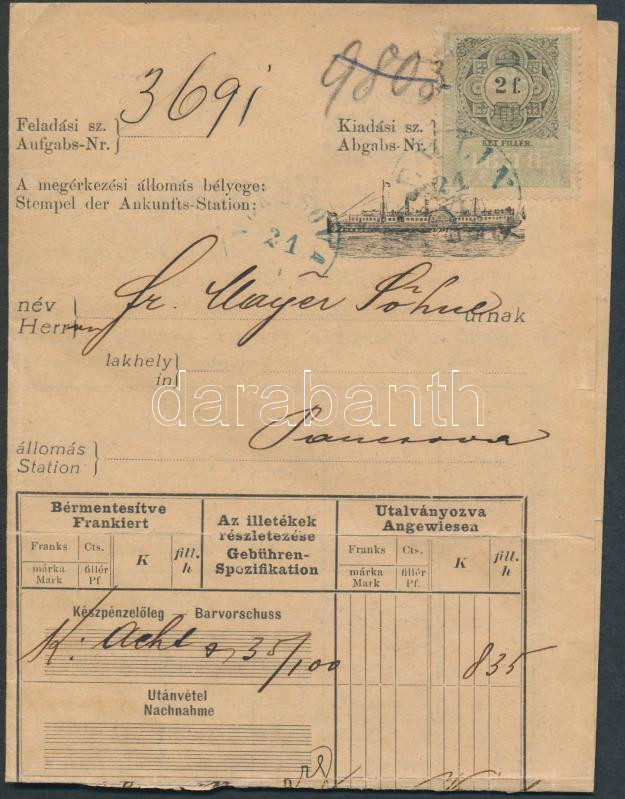 3691
9803
2 f.
KÉT FILLÉR.
Feladási sz.
Aufgabs-Nr.
Kiadási sz.
Abgabs-Nr.
A megérkezési állomás bélyege:
Stempel der Ankunfts-Station:
21
21
név
Herrn
Fr. Mayer Söhne
úrnak
lakhely
in
Pancsova
állomás
Station
darabanth
Bérmentesítve
Frankiert
Az illetékek
részletezése
Gebühren-
Spezifikation
Utalványozva
Angewiesen
Franks Cts. K fill. h
márka fillér
Mark Pf.
Franks Cts. K fill. h
márka fillér
Mark Pf.
Készpénzelőleg — Barvorschuss
K. Acht 35/100
835
Utánvétel
Nachnahme